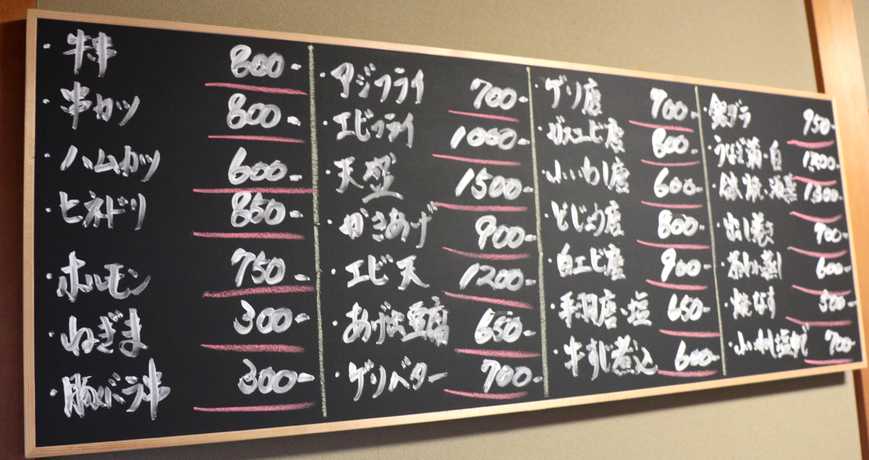 ・牛串 800-
・串カツ 800-
・ハムカツ 600-
・ヒネドリ 850-
・ホルモン 750-
・ねぎま 300-
・豚バラ串 300-
・アジフライ 700-
・エビフライ 1000-
・天盛 1500-
・かきあげ 900-
・エビ天 1200-
・あげ出豆腐 650-
・ゲソバター 700-
・ゲソ唐 700-
・ガスエビ唐 800-
・小いわし唐 600-
・どじょう唐 800-
・白エビ唐 900-
・手羽唐・塩 650-
・牛すじ煮込 600-
・銀ダラ 950-
・うなぎ蒲・白
1300-
・出し巻き 700-
・茶わん蒸し 600-
・焼なす 500-
700-